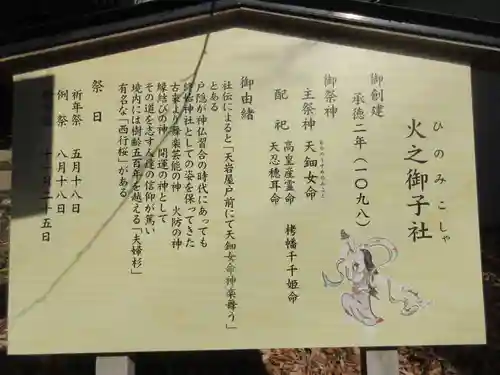 ひのみこしゃ
火之御子社
御創建
承徳二年（一〇九八）
御祭神
主祭神 天鈿女命
配祀 高皇産霊命 栲幡千千姫命
天忍穂耳命
御由緒
社伝によると「天岩屋戸前にて天鈿女命神楽舞う」
とある
戸隠が神仏習合の時代にあっても
終始神社としての姿を保ってきた
古来より舞楽芸能の神 火防の神
縁結びの神 開運の神として
その道を志す人達の信仰が篤い
境内には樹齢五百年を越える「夫婦杉」
有名な「西行桜」がある
祭日
祈年祭 五月十八日
例祭 八月十八日
十一月二十五日